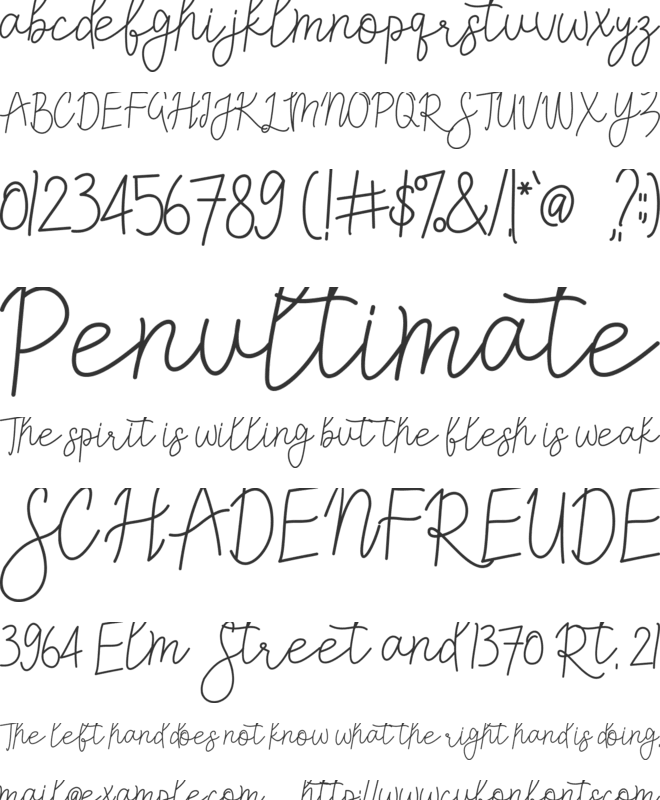 abcdefghijklmnopqrstuvwxyz
ABCDEFGHIJKLMNOPQRSTUVWXYZ
0123456789 (!#$%&/|*`@ ?:)
Penultimate
The spirit is willing but the flesh is weak
SCHADENFREUDE
3964 Elm Street and 1370 Rt. 21
The left hand does not know what the right hand is doing.
mail@example.com http://www.cufonfonts.com